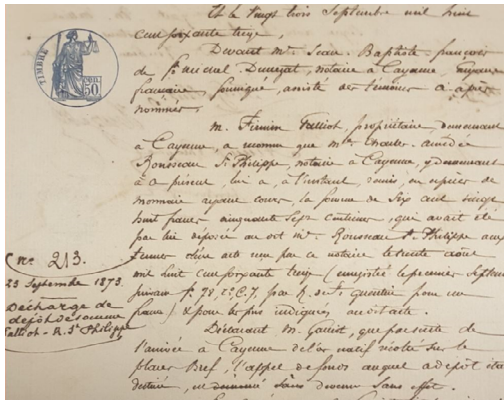 Et le vingt trois Septembre mil huit
cent soixante treize,
Devant Me Jean Baptiste françois
de St Michel Dunezat, notaire à Cayenne, Guyane
française, soussigné, assisté des témoins ci-après
nommés,
M. Firmin Galliot, propriétaire, demeurant
à Cayenne, a reconnu que Me Charles Amédée
Rousseau St Philippe, notaire à Cayenne, y demeurant
à ce présent, lui a, à l'instant, remis en espèces de
monnaie ayant cours, la somme de Six cent
huit francs cinquante Sept centimes, qui avait été
par lui déposée au dit Me Rousseau St Philippe aux
termes d'un acte reçu par ce notaire le trente août
mil huit cent soixante treize (enregistré le premier Septembre
suivant fo 78, Ro C. 7, par
franc) & pour les causes indiquées au dit acte.
Déclarant M. Galliot, que par suite de
l'arrivée à Cayenne de l'or natif récolté sur le
placer Bref, l'appel de fonds auquel ce dépôt était
destiné, est demeuré Sans devenir Sans effet.
TIMBRE
50
No 213.
23 Septembre 1873.
Décharge de
dépôt de somme
Galliot - R. St Philippe